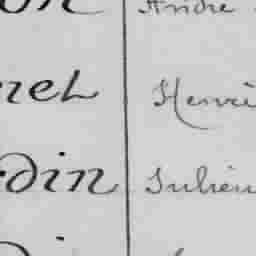 on André
nel Henri
din Julien